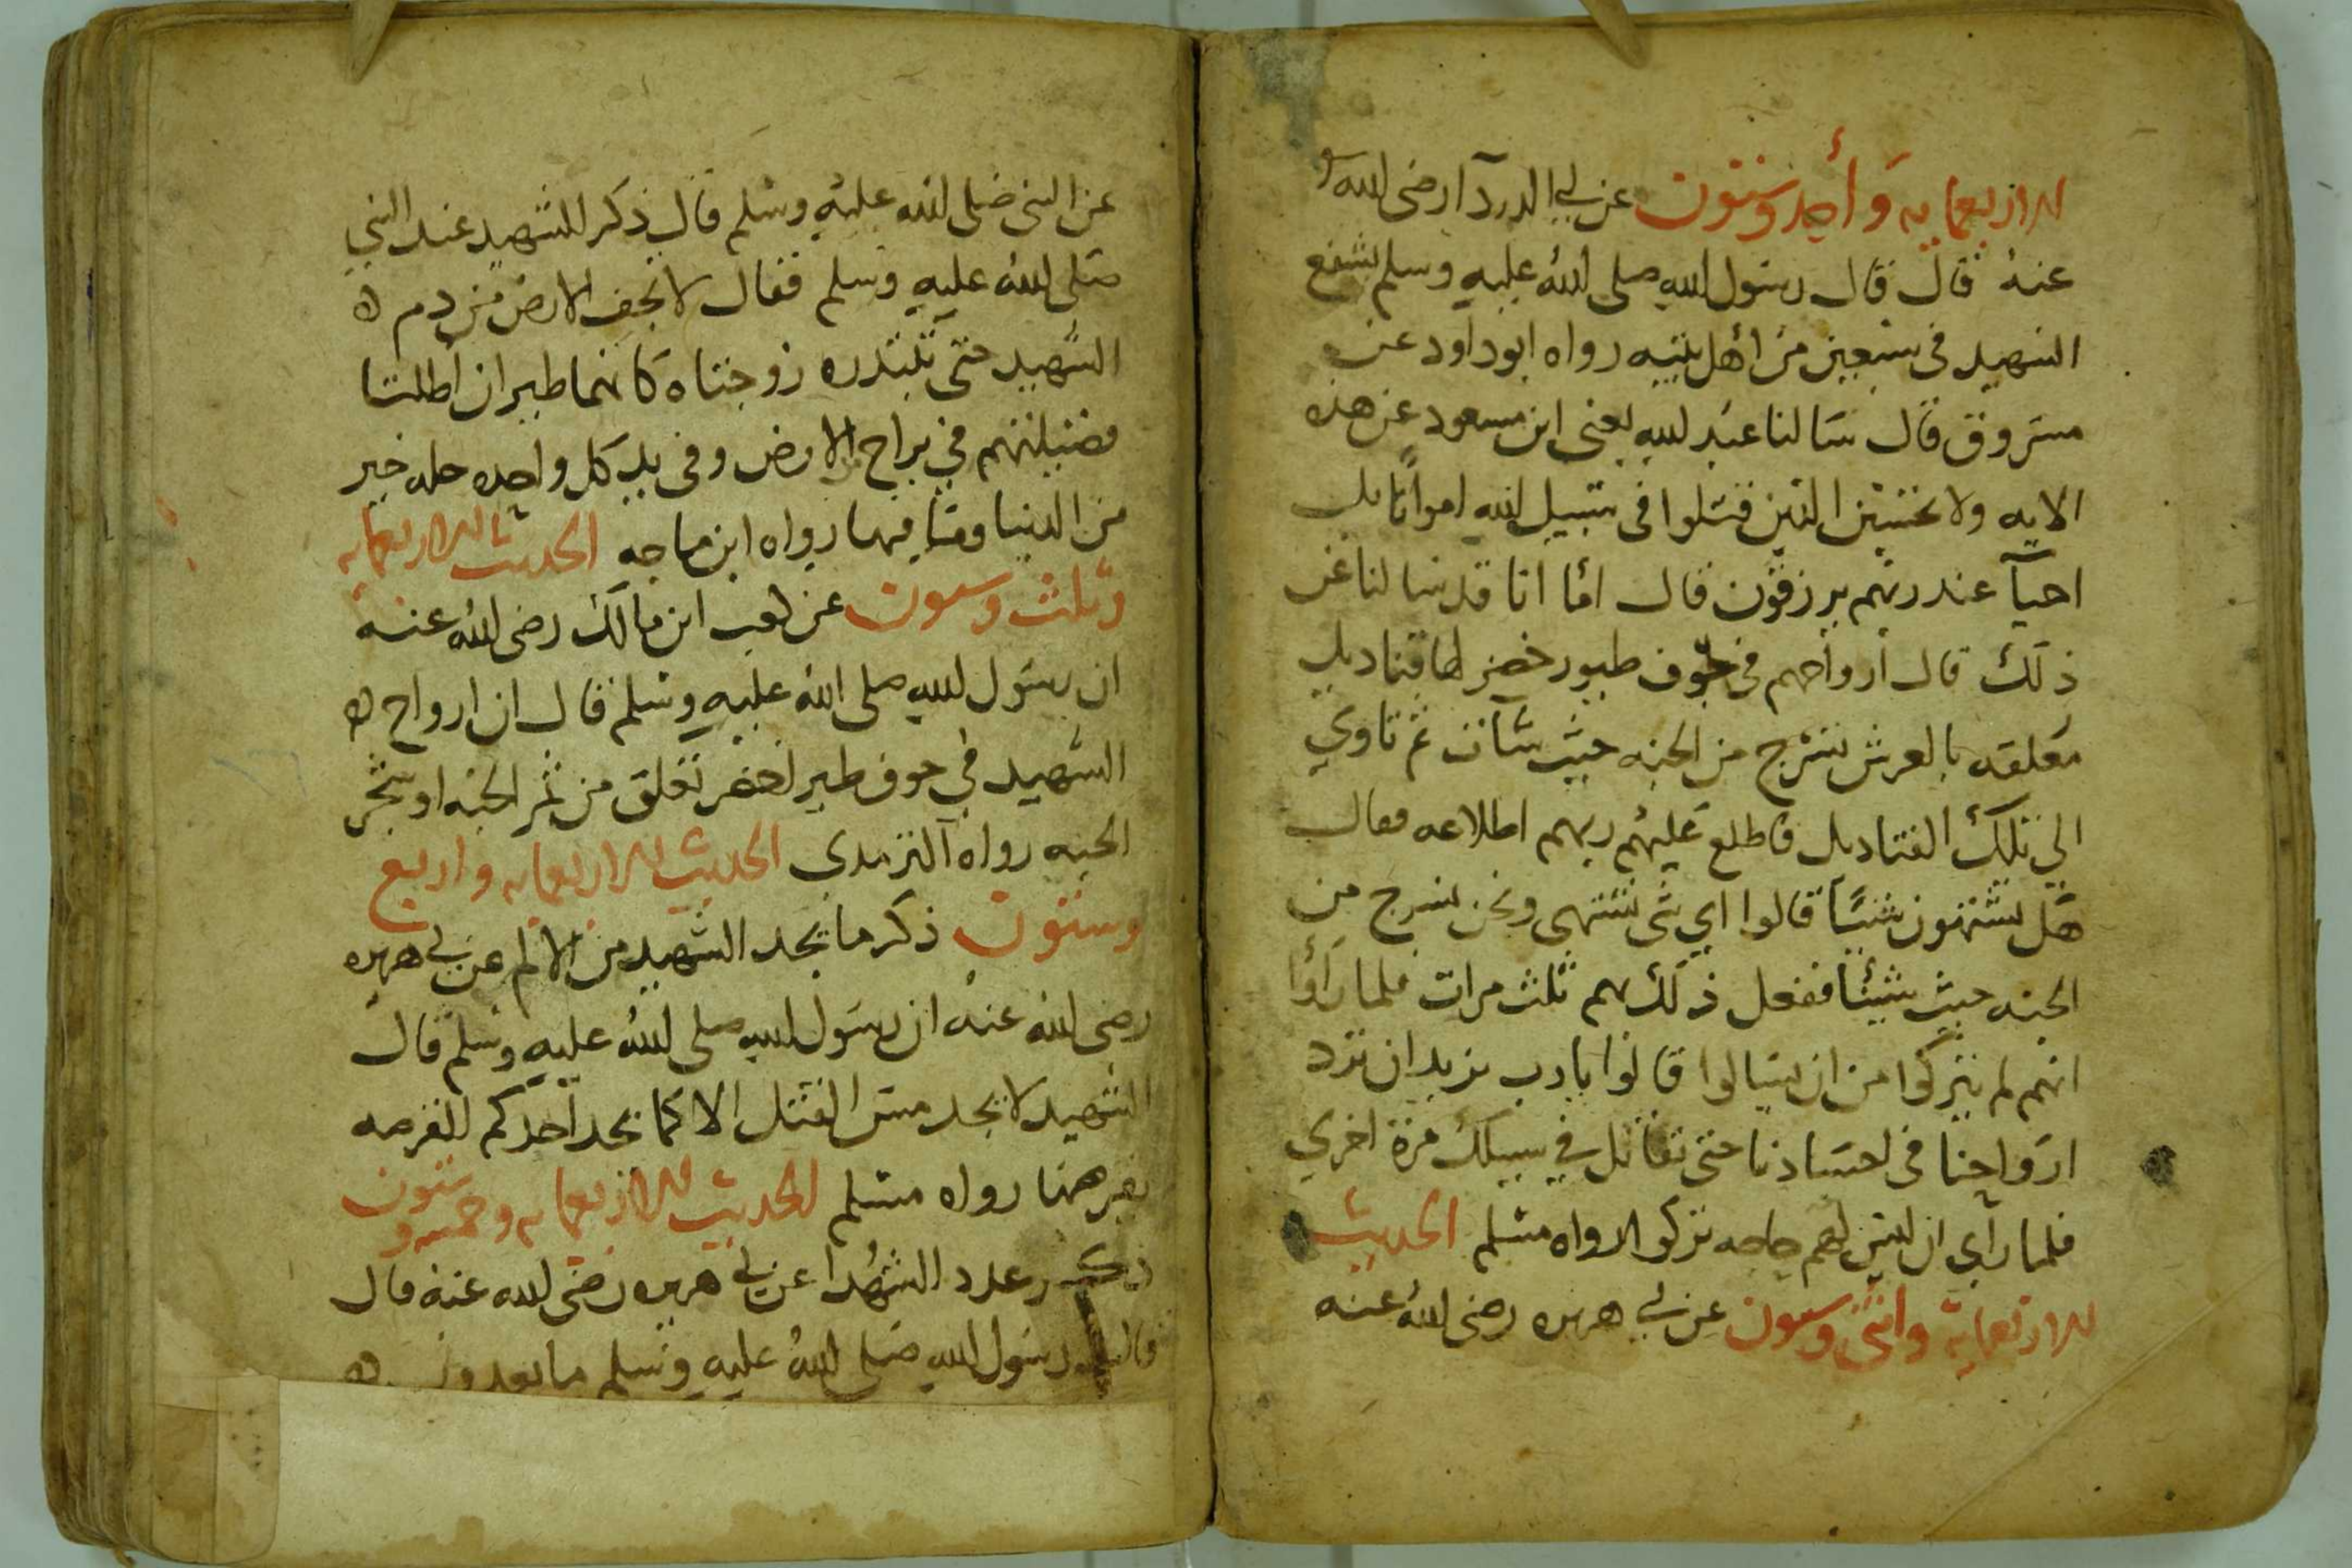 الاربعمايه وأحد وستون عن ابي الدردآ ارضى الله
عنه قال قال رسول الله صلى الله عليه وسلم يشفع
الشهيد فى سبعين من اهل بيته رواه ابوداود عن
مسروق قال سالنا عبد الله يعنى ابن مسعود عن هذه
الايه ولا تحسبن الذين قتلوا فى سبيل الله امواتا بل
احيآ عند ربهم يرزقون قال اما انا قد سالنا عن
ذلك قال ارواحهم فى جوف طيور خضر لها قناديل
معلقه بالعرش تسرج من الجنه حيث شآت ثم تاوي
الى تلك القناديل فاطلع عليهم ربهم اطلاعه فقال
هل تشتهون شيئا قالوا اي شى نشتهى ونحن نسرج من
الجنه حيث شيئنا ففعل ذلك بهم ثلث مرات فلما راوا
انهم لم يتركوا من ان يسالوا قالوا يا رب نريد ان ترد
ارواحنا فى اجسادنا حتى نقاتل في سبيلك مرة اخري
فلما رآي ان ليس لهم حاجه تركوا رواه مسلم الحديث
الاربعمايه واثنى وستون عن ابي هريره رضى الله عنه
عن النبى صلى الله عليه وسلم قال ذكر للشهيد عند النبي
صلى الله عليه وسلم فقال لا تجف الارض من دم ه
الشهيد حتى تبتدره زوجتاه كانهما طيران اظلتا
فصيلتهم في براح الارض وفى يد كل واحده حله خير
من الدنيا وما فيها رواه ابن ماجه الحديث الاربعمايه
وثلث وستون عن كعب ابن مالك رضى الله عنه
ان رسول الله صلى الله عليه وسلم قال ان ارواح ه
الشهيد في جوف طير اخضر تعلق من ثمر الجنه او شجر
الجنه رواه الترمدى الحديث الاربعمايه واربع
وستون ذكر ما يجد الشهيد من الالم عن ابي هريره
رضى الله عنه ان رسول الله صلى الله عليه وسلم قال
الشهيد لا يجد مس القتل الا كما يجد احدكم القرصه
يقرصها رواه مسلم الحديث الاربعمايه وخمسه وستون
ذكر عدد الشهدا عن ابي هريره رضى الله عنه قال
قال رسول الله صلى الله عليه وسلم ما تعدون ه